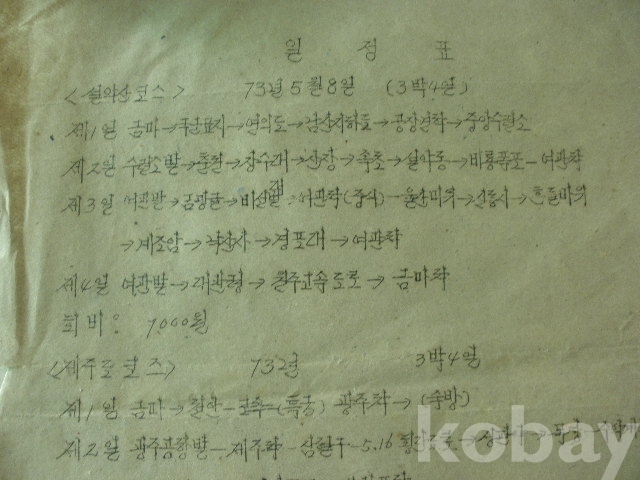 일 정 표
<설악산 코스> 73년 5월 8일 (3박4일)
제1일 금마→국군묘지→여의도→남산지하도→공장견학→중앙수련소
제2일 수련소발→춘천→장수대→산장→속초→설악동→비룡폭포-여관착
제3일 여관발→금강굴→비선대→여관착(중식)-울산바위→신흥사→흔들바위
→계조암→낙산사→경포대→여관착
제4일 여관발→대관령→원주고속도로→금마착
회비: 7,000원
<제주도 코즈> 732년 3박4일
제1일 금마→ (특급) 광주착→(숙박)
제2일 광주공항발-제주착-삼현구-5.16
kobay